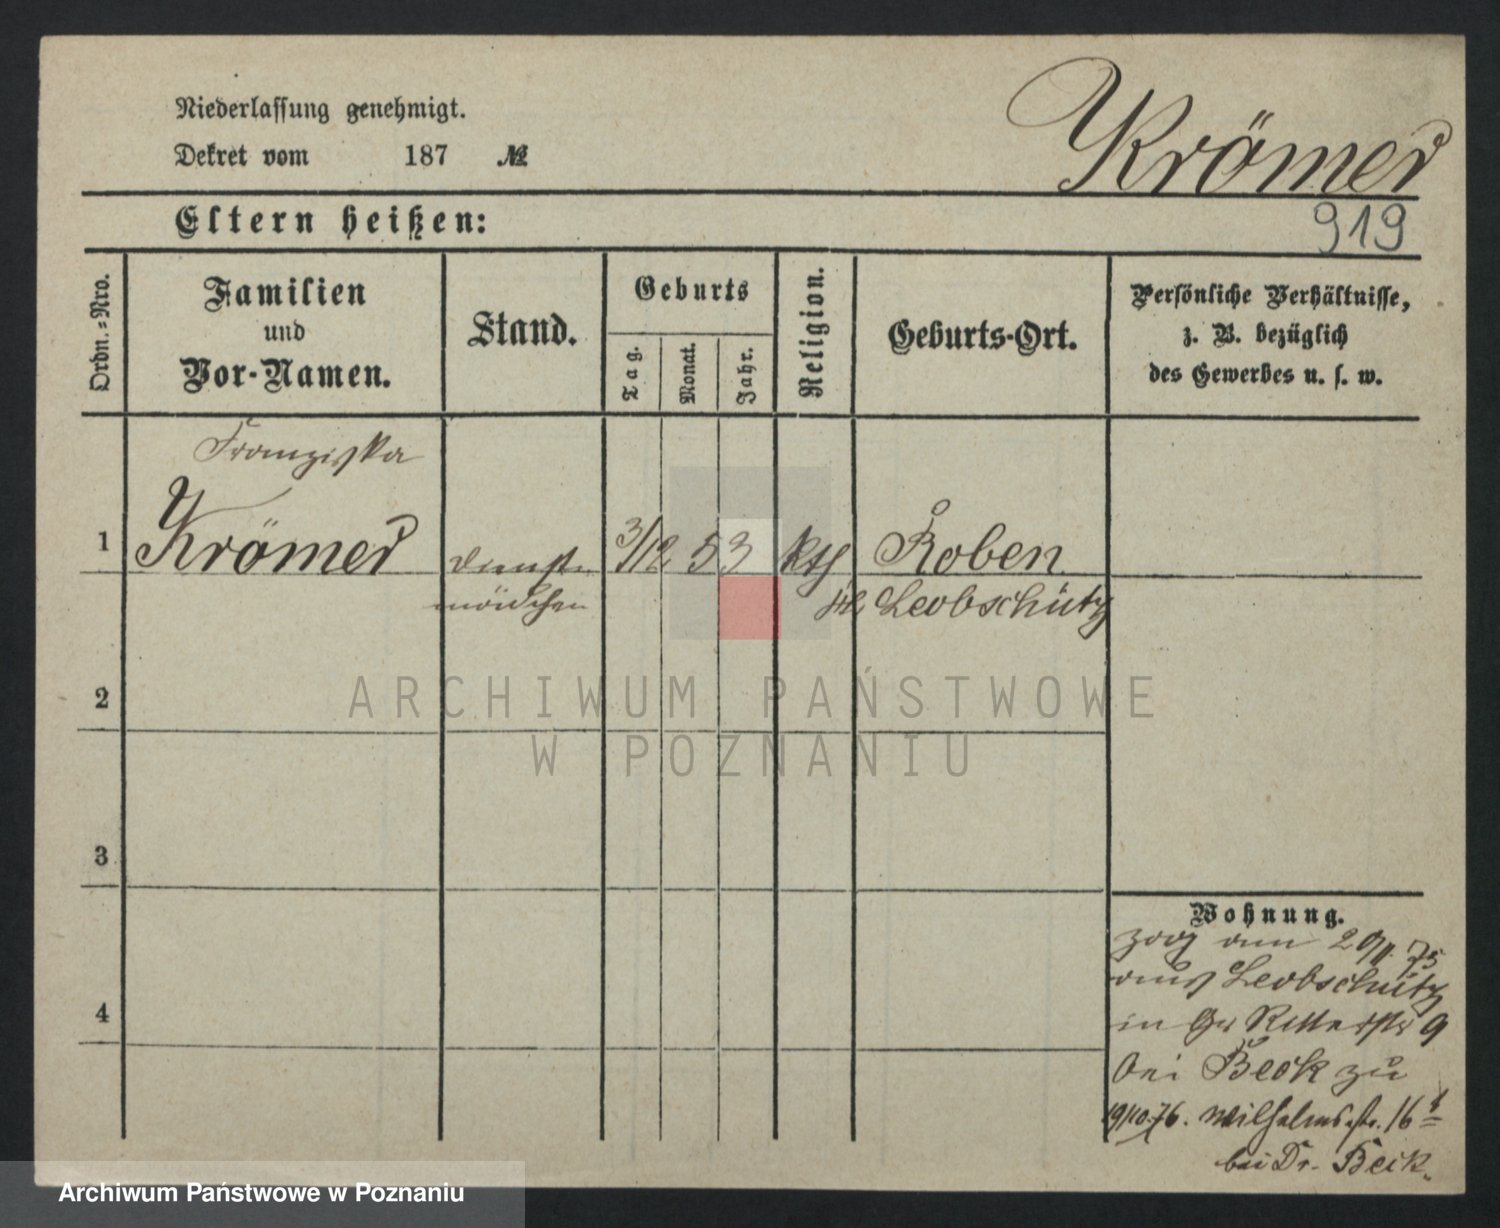 Niederlassung genehmigt.
Dekret vom 187 №
Krömer
919
Eltern heißen:
Ordn.-Nro.
Familien
und
Vor-Namen.
Stand.
Geburts
Tag.
Monat.
Jahr.
Religion.
Geburts-Ort.
Persönliche Verhältnisse,
z. B. bezüglich
des Gewerbes u. s. w.
Franziska
1 Krömer Dienst- 3/12 53 kth Roben
mädchen Leobschütz
2
3
4
Wohnung.
zog am 20/11 75
aus Leobschütz
in Gr Ritterstr 9
bei Beck zu
19/10.76. Wilhelmsstr. 16
bei Dr. Beck.
ARCHIWUM PAŃSTWOWE
W POZNANIU
Archiwum Państwowe w Poznaniu